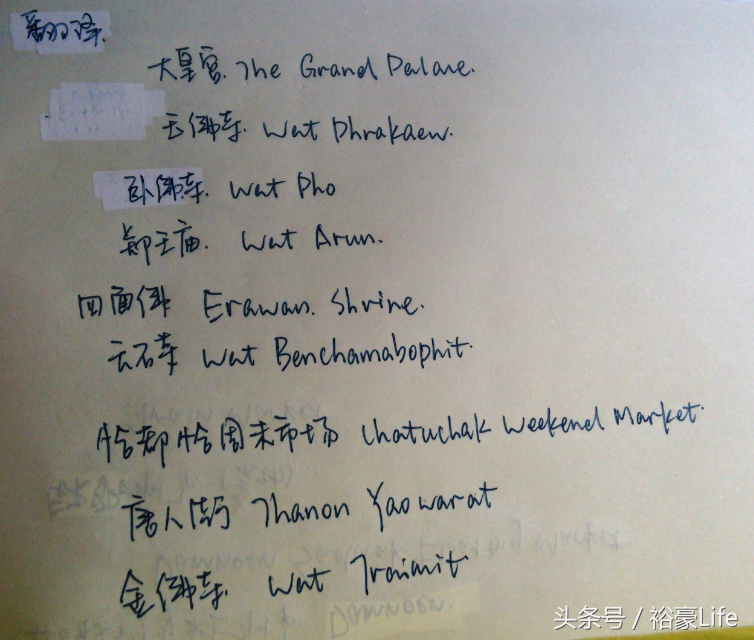 翻译.
大皇宫. The Grand Palace.
玉佛寺. Wat Phrakaew.
卧佛寺. Wat Pho
郑王庙. Wat Arun.
四面佛 Erawan. Shrine.
云石寺 Wat Benchamabophit.
恰都恰周末市场 Chatuchak Weekend Market.
唐人街 Thanon Yaowarat
金佛寺. Wat Traimit
头条号 / 裕豪Life